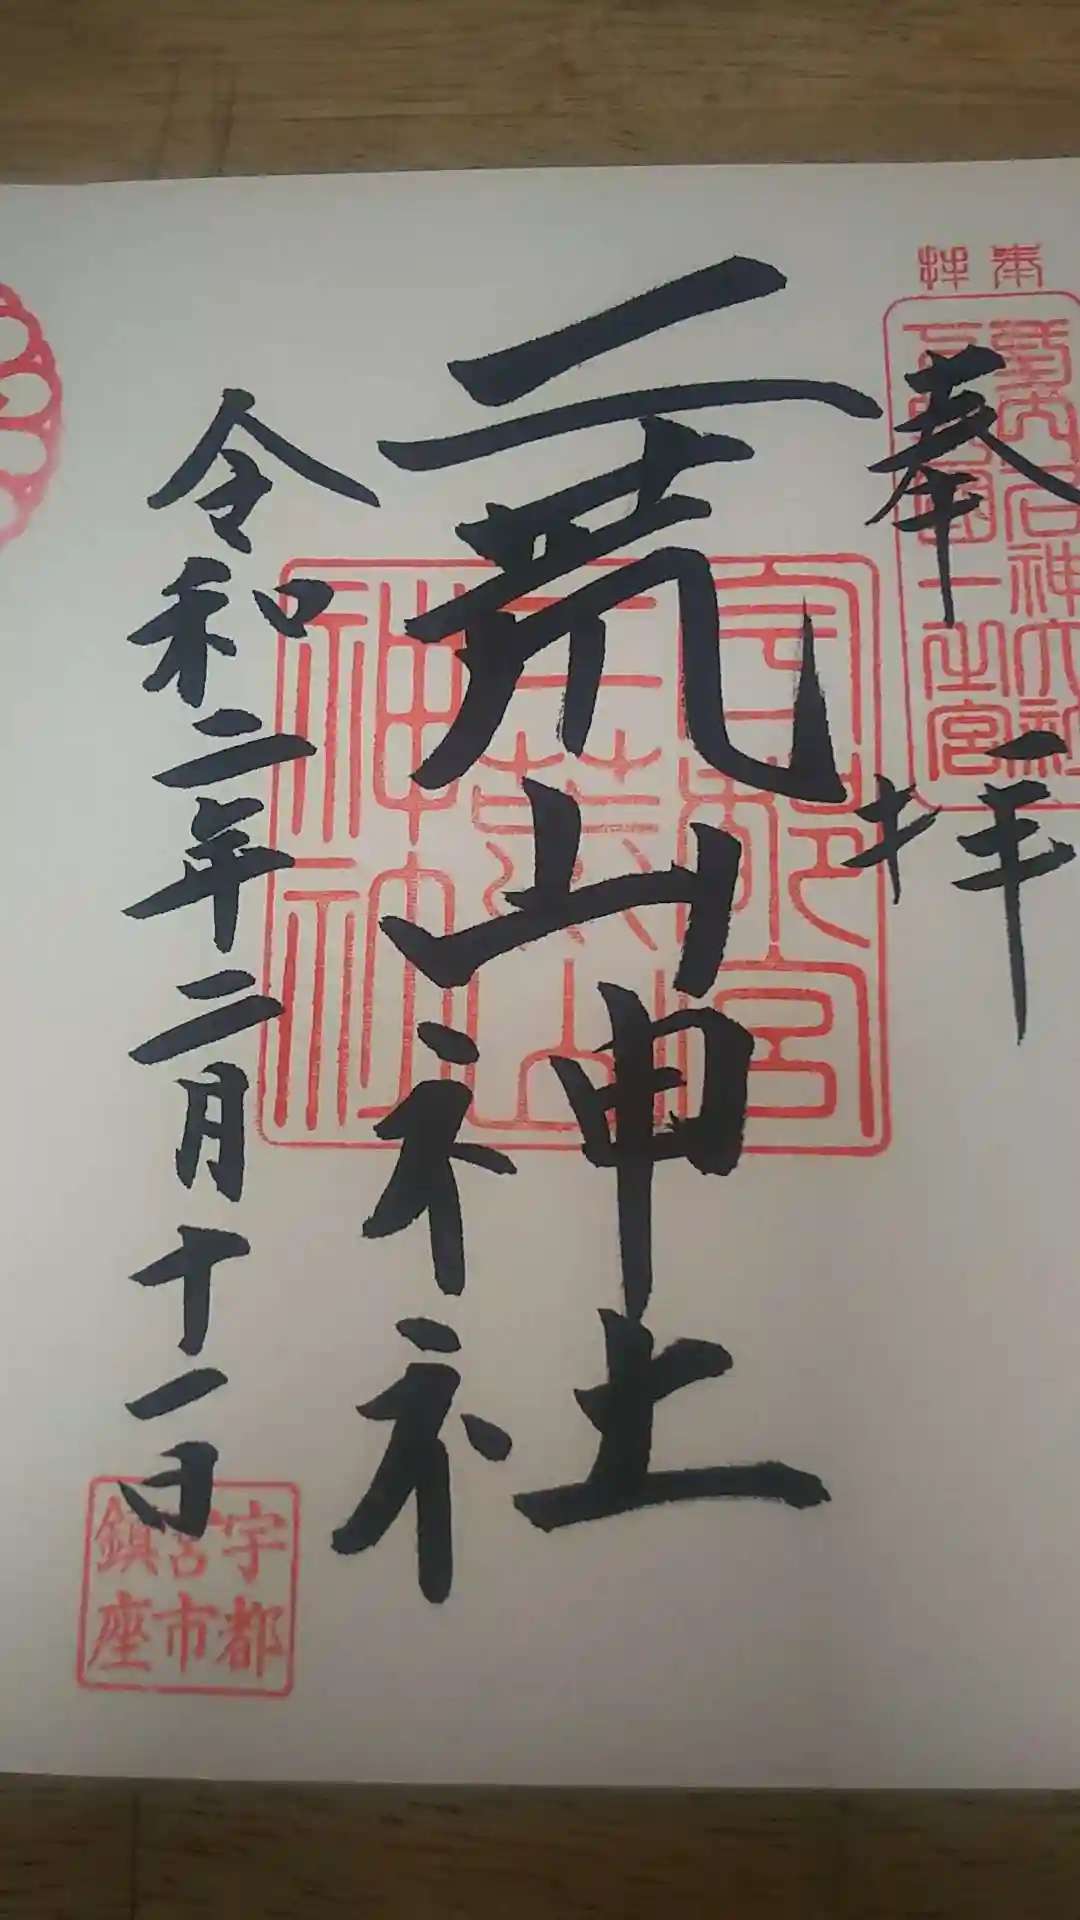 奉拝
奉拝
延喜式内名神大社
下野國一之宮
二荒山神社
宇都宮
二荒山
神社
令和二年二月十一日
宇都
宮市
鎮座